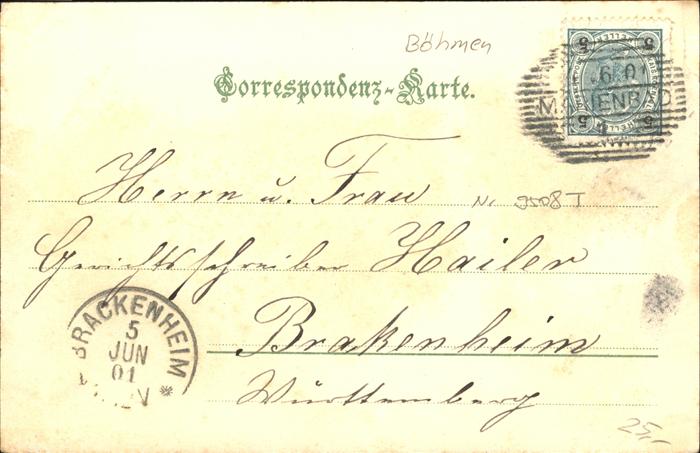 Böhmen
Correspondenz-Karte.
5 HELLER 5
6 01
MARIENBAD
Herrn u. Frau
N. 9508 I
Gerichtsschreiber Hailer
Brakenheim
Württemberg
BRACKENHEIM
5
JUN
01
25,-